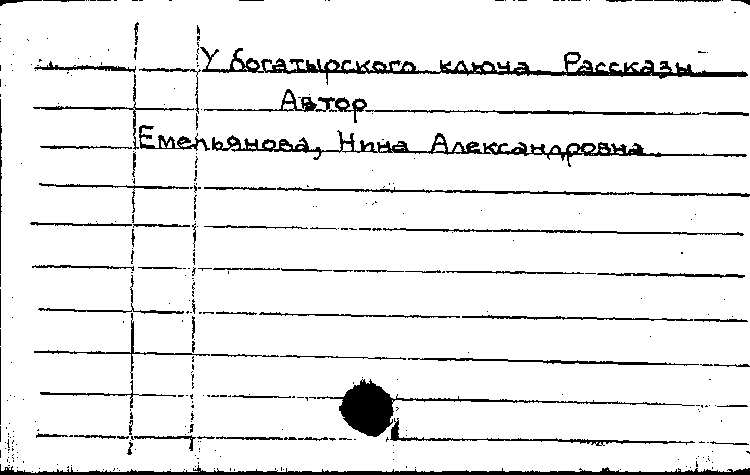 У богатырского ключа. Рассказы.
Автор
Емельянова, Нина Александровна.